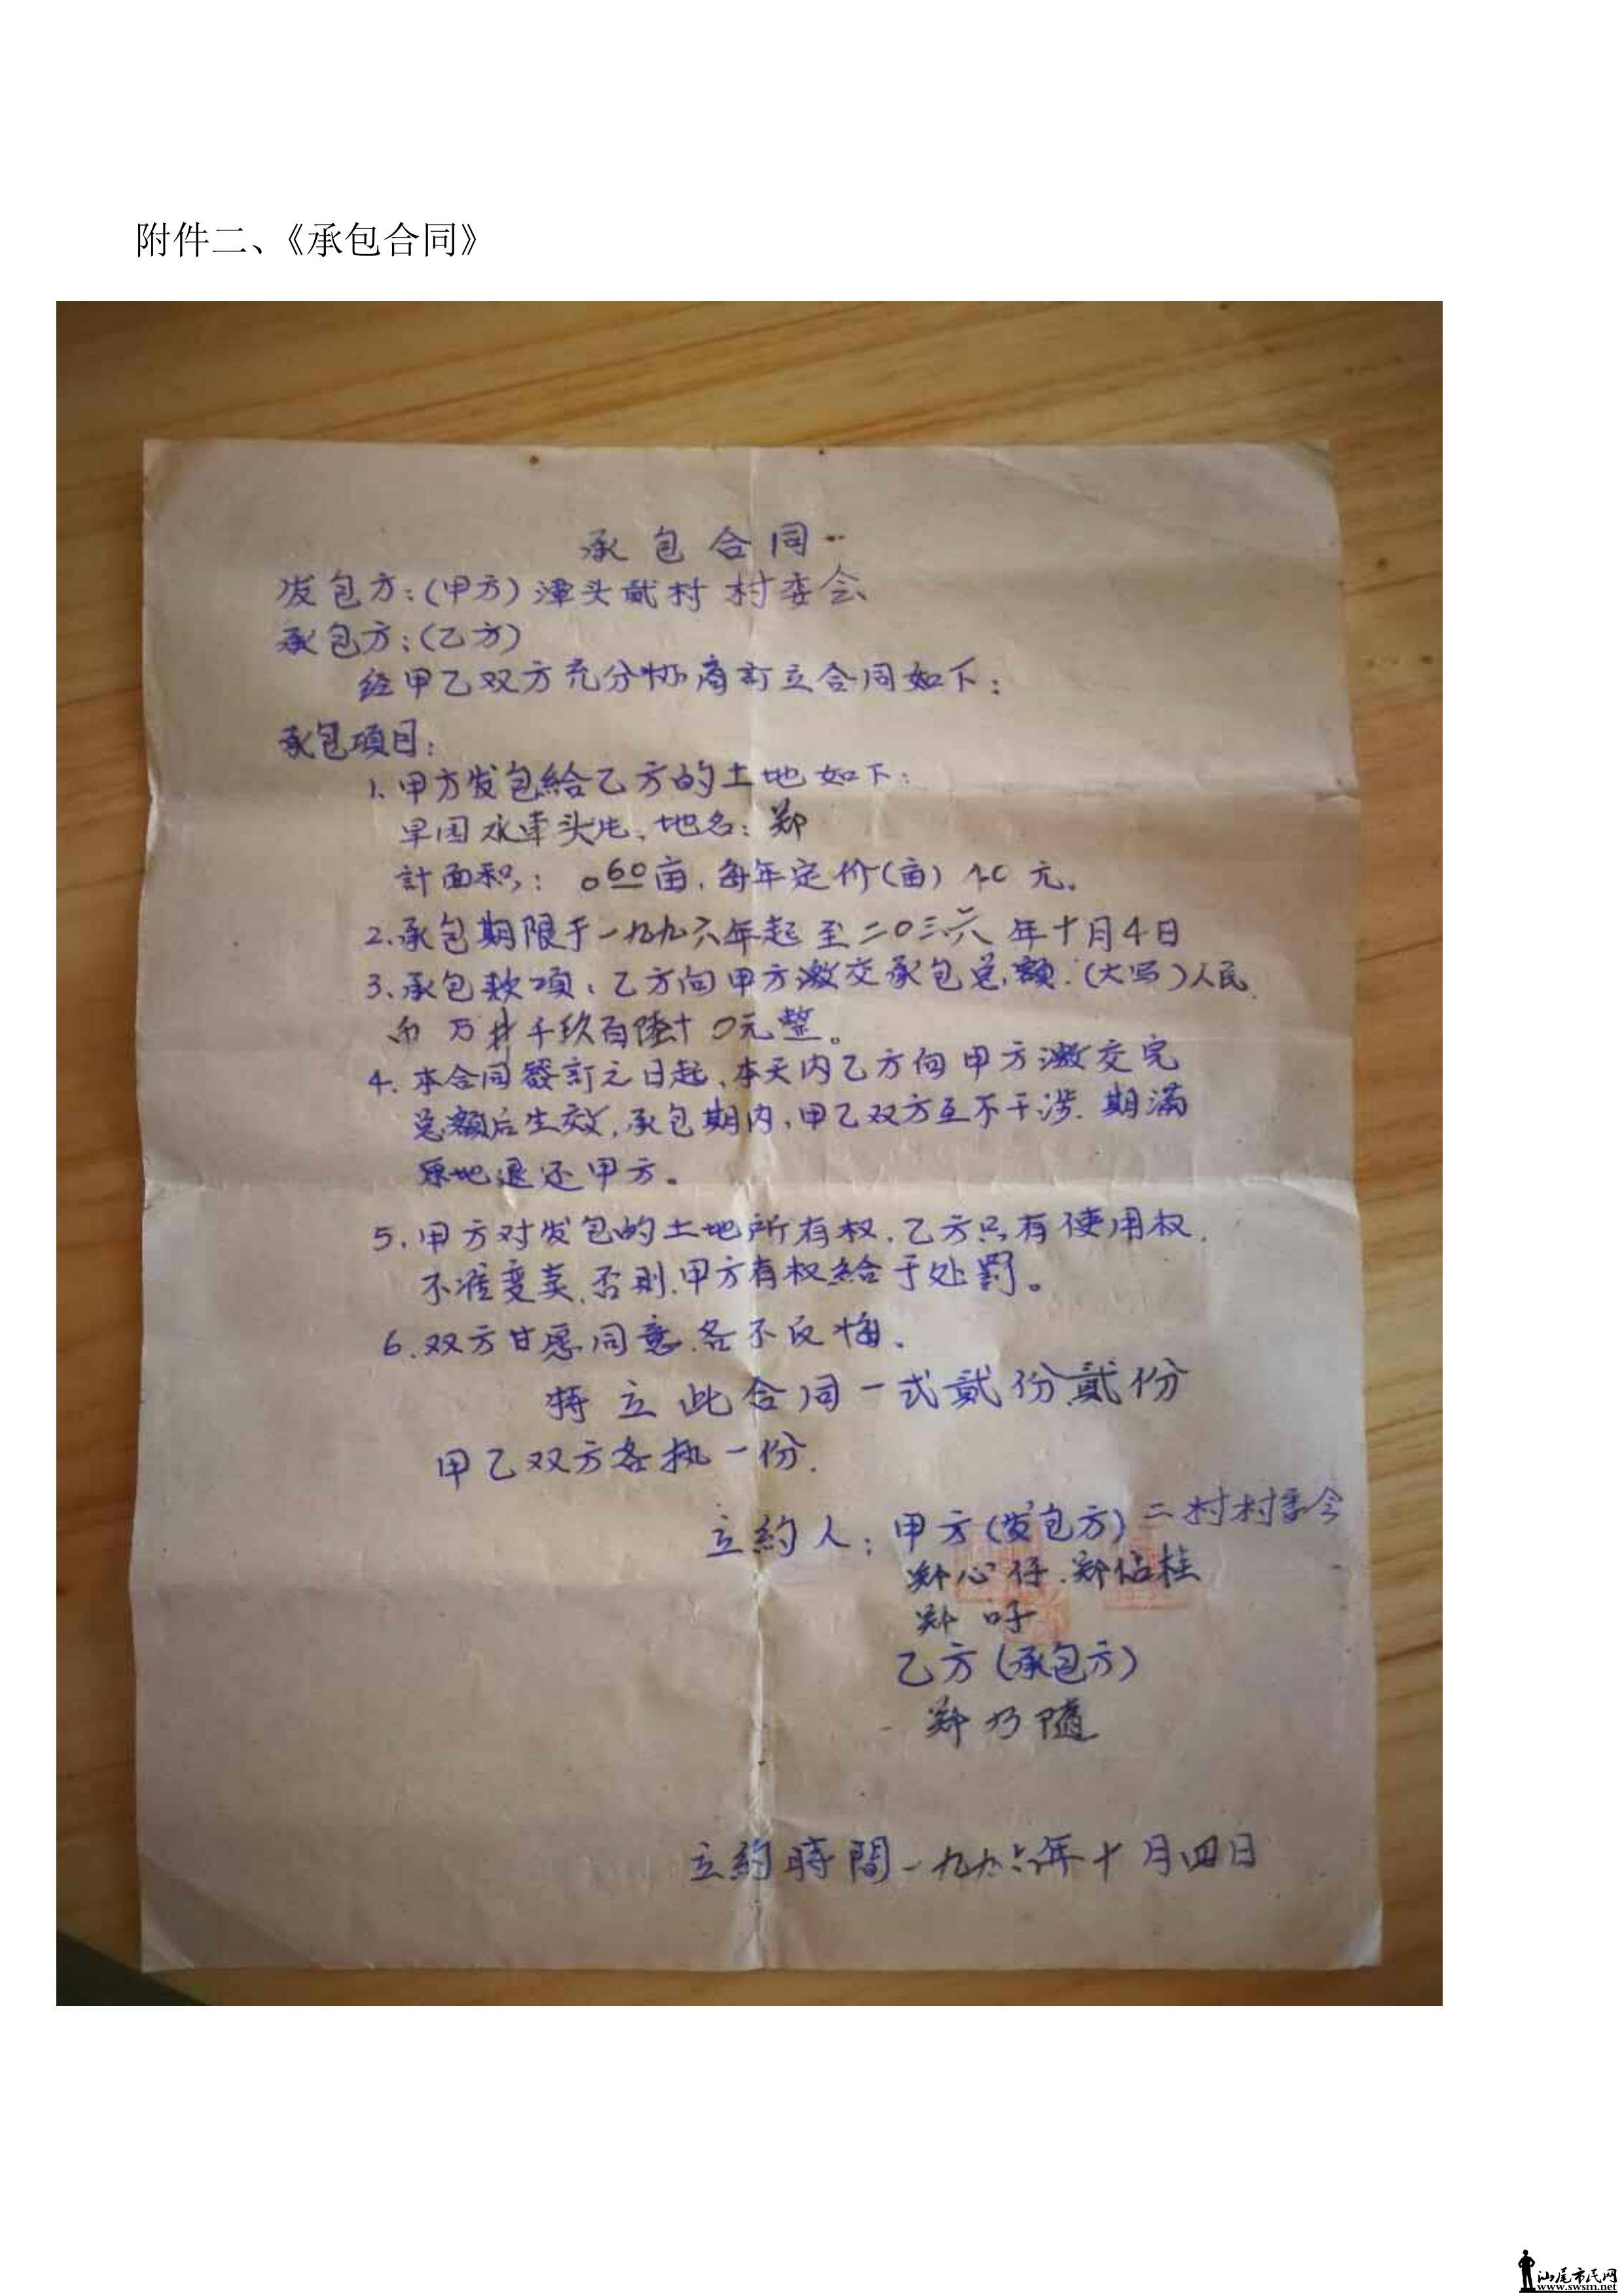 附件二、《承包合同》
承包合同
发包方：(甲方)潭头貮村村委会
承包方：(乙方)
经甲乙双方充分协商訂立合同如下：
承包項目：
1.甲方发包給乙方的土地如下：
旱园水車头片、地名：郑
計面积：060亩，每年定价(亩)
元。
2.承包期限于一九九六年起至二0三六年十月4日
3.承包款項、乙方向甲方激交承包总額：(大写)人民
币 万 千玖百陸十0元整。
4.本合同簽訂之日起、本天内乙方向甲方激交完
总額后生效，承包期内，甲乙双方互不干涉.期满
原地退还甲方。
5.甲方对发包的土地所有权，乙方只有使用权，
不准变卖，否則，甲方有权給于处罰。
6.双方甘愿同意，各不反悔。
特立此合同一式貮份貮份
甲乙双方各执一份.
立約人：甲方(发包方)二村村委会
郑心仔.郑佔桂
郑
乙方(承包方)
郑乃隨
立約時間一九九六年十月四日
汕尾市民网
www.swsm.net